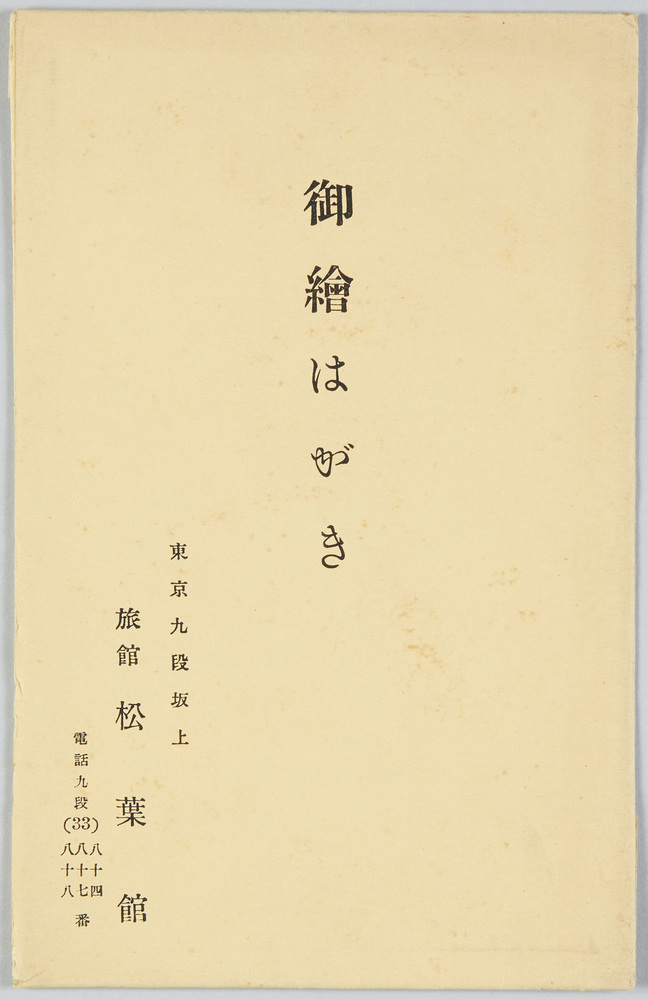 御繪はがき
東京九段坂上
旅館 松葉館
電話九段(33)
八十四
八十七
八十八
番